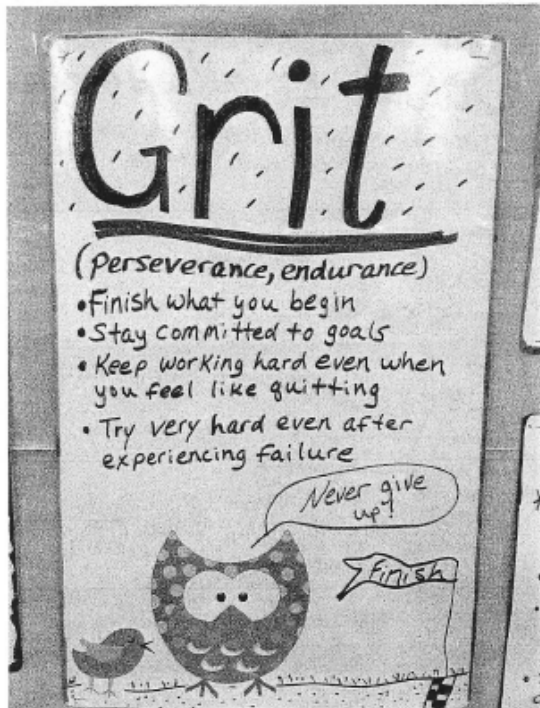 Grit
(perseverance, endurance)
•Finish what you begin
•Stay committed to goals
•Keep working hard even when
you feel like quitting
•Try very hard even after
experiencing failure
Never give
up!
finish